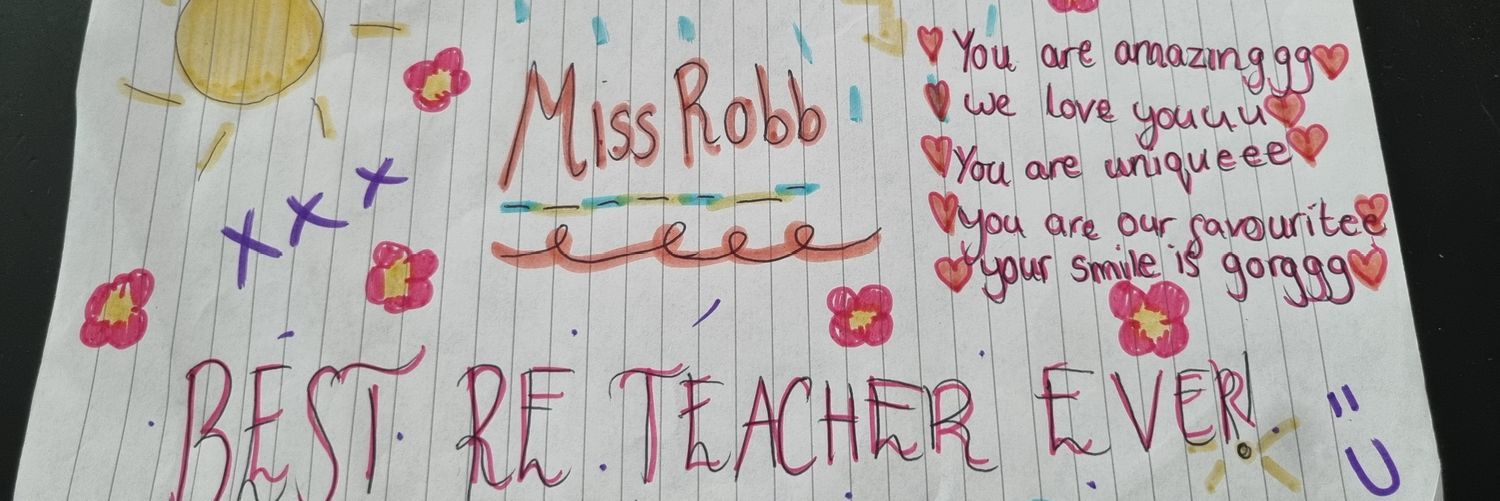 Miss Robb
You are amazinggg
we love youuu
You are uniqueee
you are our favouritee
your smile is gorggg
xxx
BEST RE TEACHER EVER!